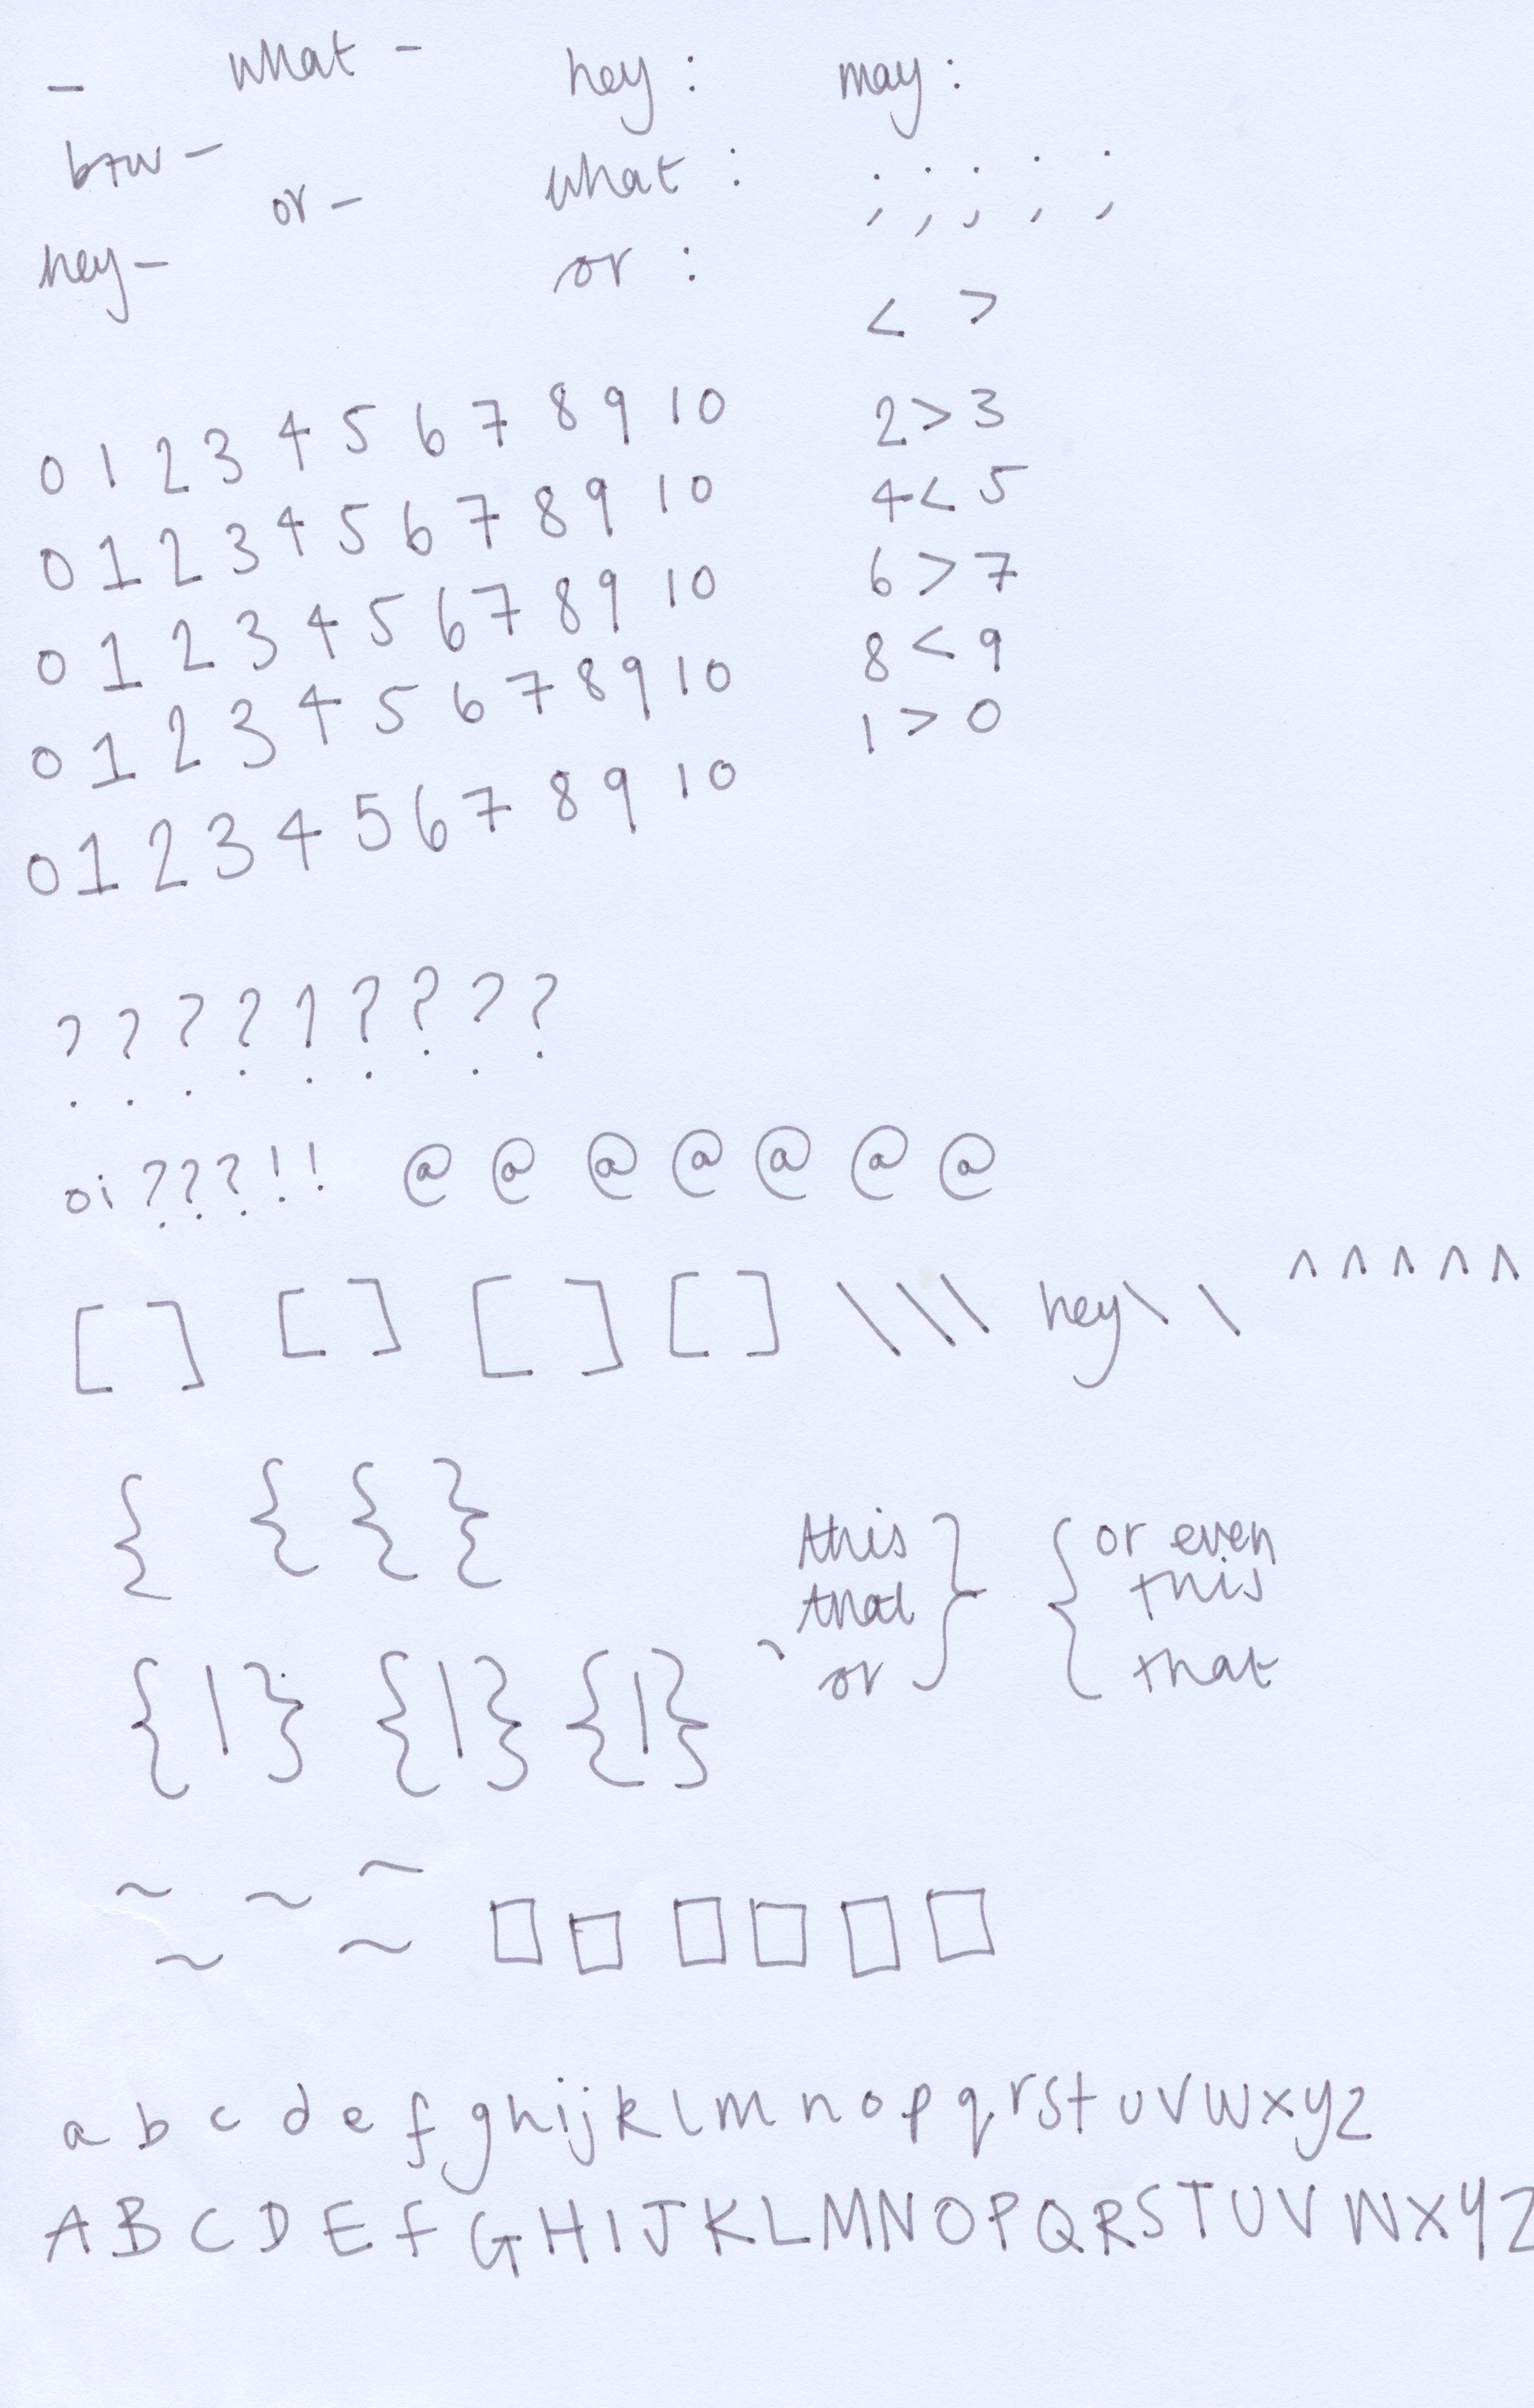 – what – hey : may :
btw – what : ; ; ; ; ;
or –
hey – or :
< >
0 1 2 3 4 5 6 7 8 9 10 2 > 3
0 1 2 3 4 5 6 7 8 9 10 4 < 5
0 1 2 3 4 5 6 7 8 9 10 6 > 7
0 1 2 3 4 5 6 7 8 9 10 8 < 9
1 > 0
0 1 2 3 4 5 6 7 8 9 10
? ? ? ? ? ? ? ? ?
oi ???!! @ @ @ @ @ @ @
[ ] [ ] [ ] [ ] \ \ \ hey \ \ ^ ^ ^ ^ ^
{ { { }
this } { or even
that this
or that
{ | } { | } { | } `
~ ~ ~
~ ~ □ □ □ □ □ □
a b c d e f g h i j k l m n o p q r s t u v w x y z
A B C D E f G H I J K L M N O P Q R S T U V W X Y Z